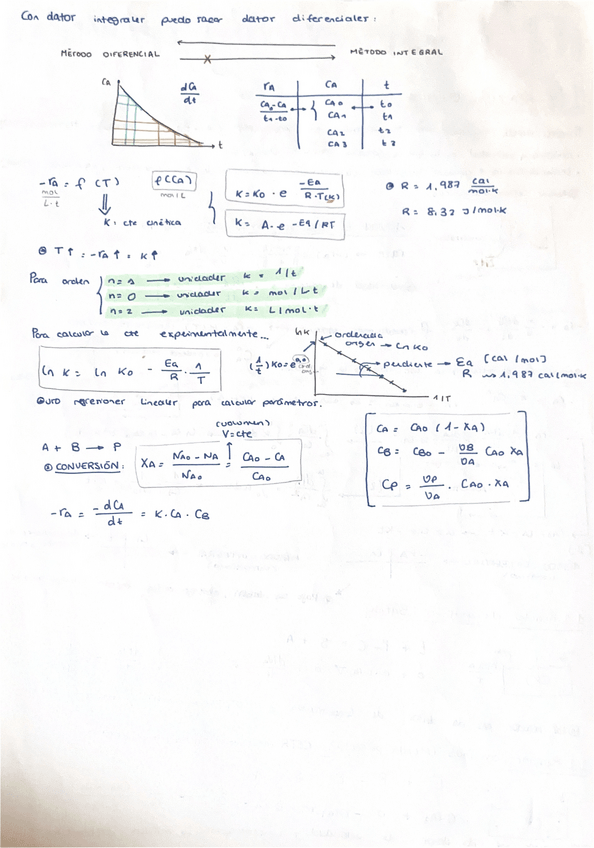 Con datos integrales puedo sacar datos diferenciales:
MÉTODO DIFERENCIAL MÉTODO INTEGRAL
CA dCA/dt t
rA CA t
CA0-CA/t1-t0 CA0 t0
CA1 t1
CA2 t2
CA3 t3
-rA = f (T) f(CA)
mol/L·t mol/L
K: cte cinética
K = K0 · e^(-Ea/R·T(K))
K = A·e^(-Ea/RT)
R = 1,987 cal/mol·K
R = 8,32 J/mol·K
T↑ : -rA↑ : K↑
Para orden
n=1 → unidades K = 1/t
n=0 → unidades K = mol/L·t
n=2 → unidades K = L/mol·t
Para calcular la cte experimentalmente...
ln K = ln K0 - Ea/R · 1/T
(1/t) K0 = e
ln K ordenada origen → Ln K0
pendiente → Ea/R [cal/mol] 1,987 cal/mol·K
1/T
uso regresiones lineales para calcular parámetros.
(volumen)
V=cte
A + B → P
CONVERSIÓN: XA = NA0 - NA/NA0 = CA0 - CA/CA0
CA = CA0 (1-XA)
CB = CB0 - υB/υA CA0 XA
CP = υP/υA · CA0 · XA
-rA = -dCA/dt = K·CA·CB